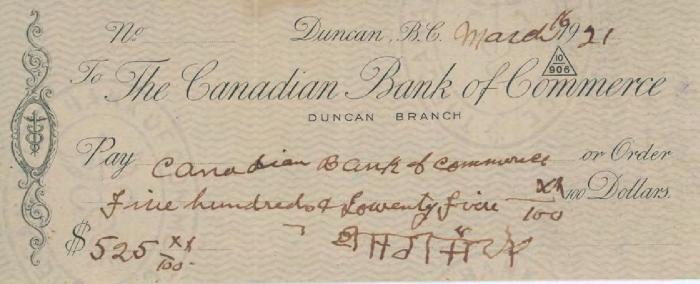 No. Duncan, B.C. March 16 1921
10
906
To The Canadian Bank of Commerce
DUNCAN BRANCH
Pay Canadian Bank of Commerce or Order
Five hundreds & Towenty five xx/100 100 Dollars.
$525 xx/100